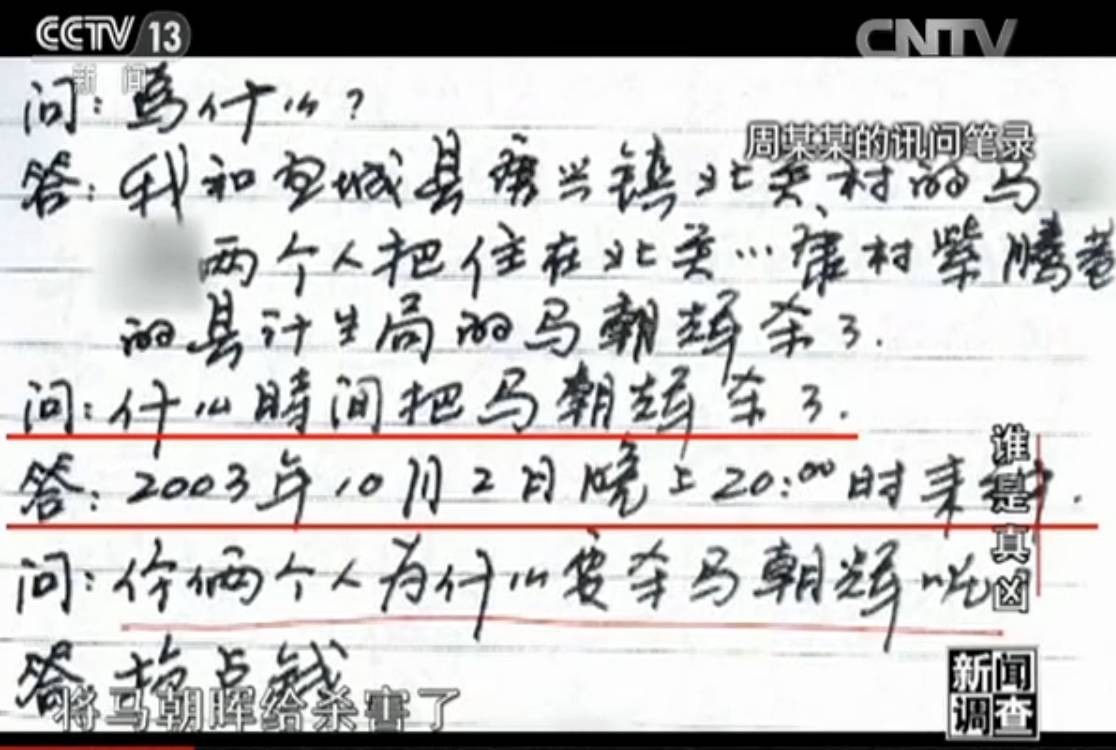 CCTV 13
新闻
CNTV
问：为什么？
周某某的讯问笔录
答：我和 城县 兴镇北关村的马
两个人把住在北关 村紫腾巷
的县计生局的马朝辉杀了.
问：什么時间把马朝辉杀了.
答：2003年10月2日晚上20:00时
谁是真凶
问：你俩个人为什么要杀马朝辉呢
答：抢点钱
将马朝晖给杀害了
新闻
调查